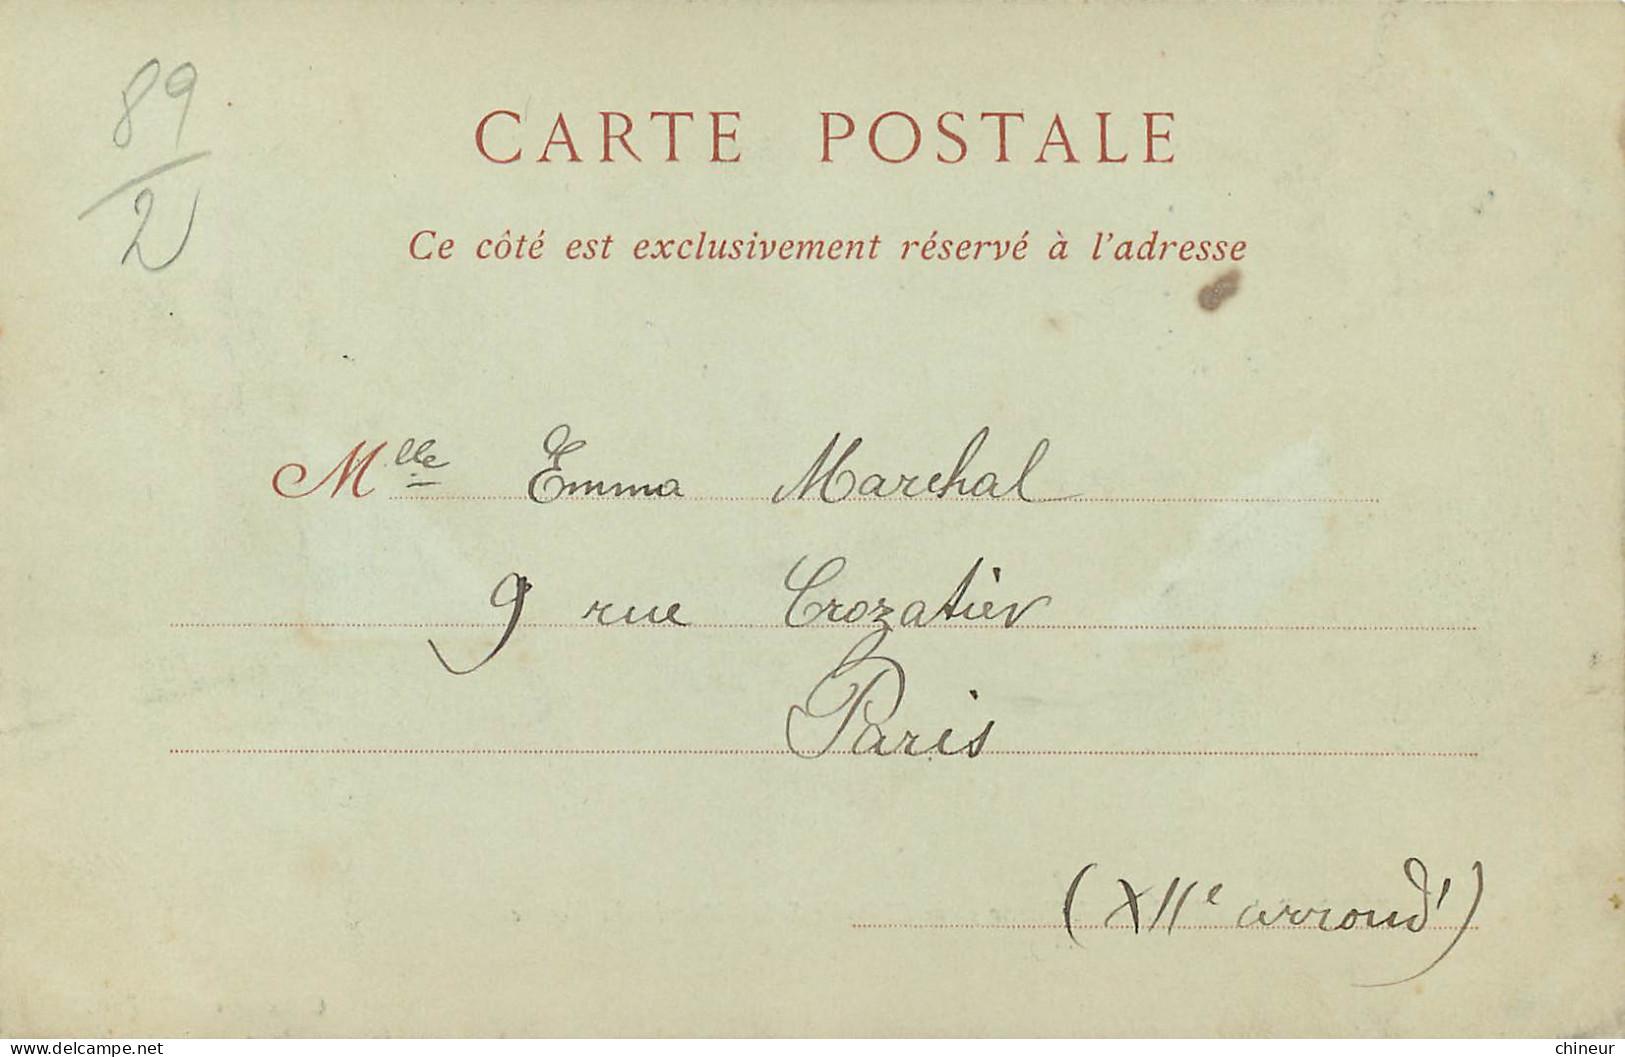 89
2
CARTE POSTALE
Ce côté est exclusivement réservé à l'adresse
Mlle Emma Marchal
9 rue Crozatier
Paris
(XIIe arrond')
delcampe.net
chineur